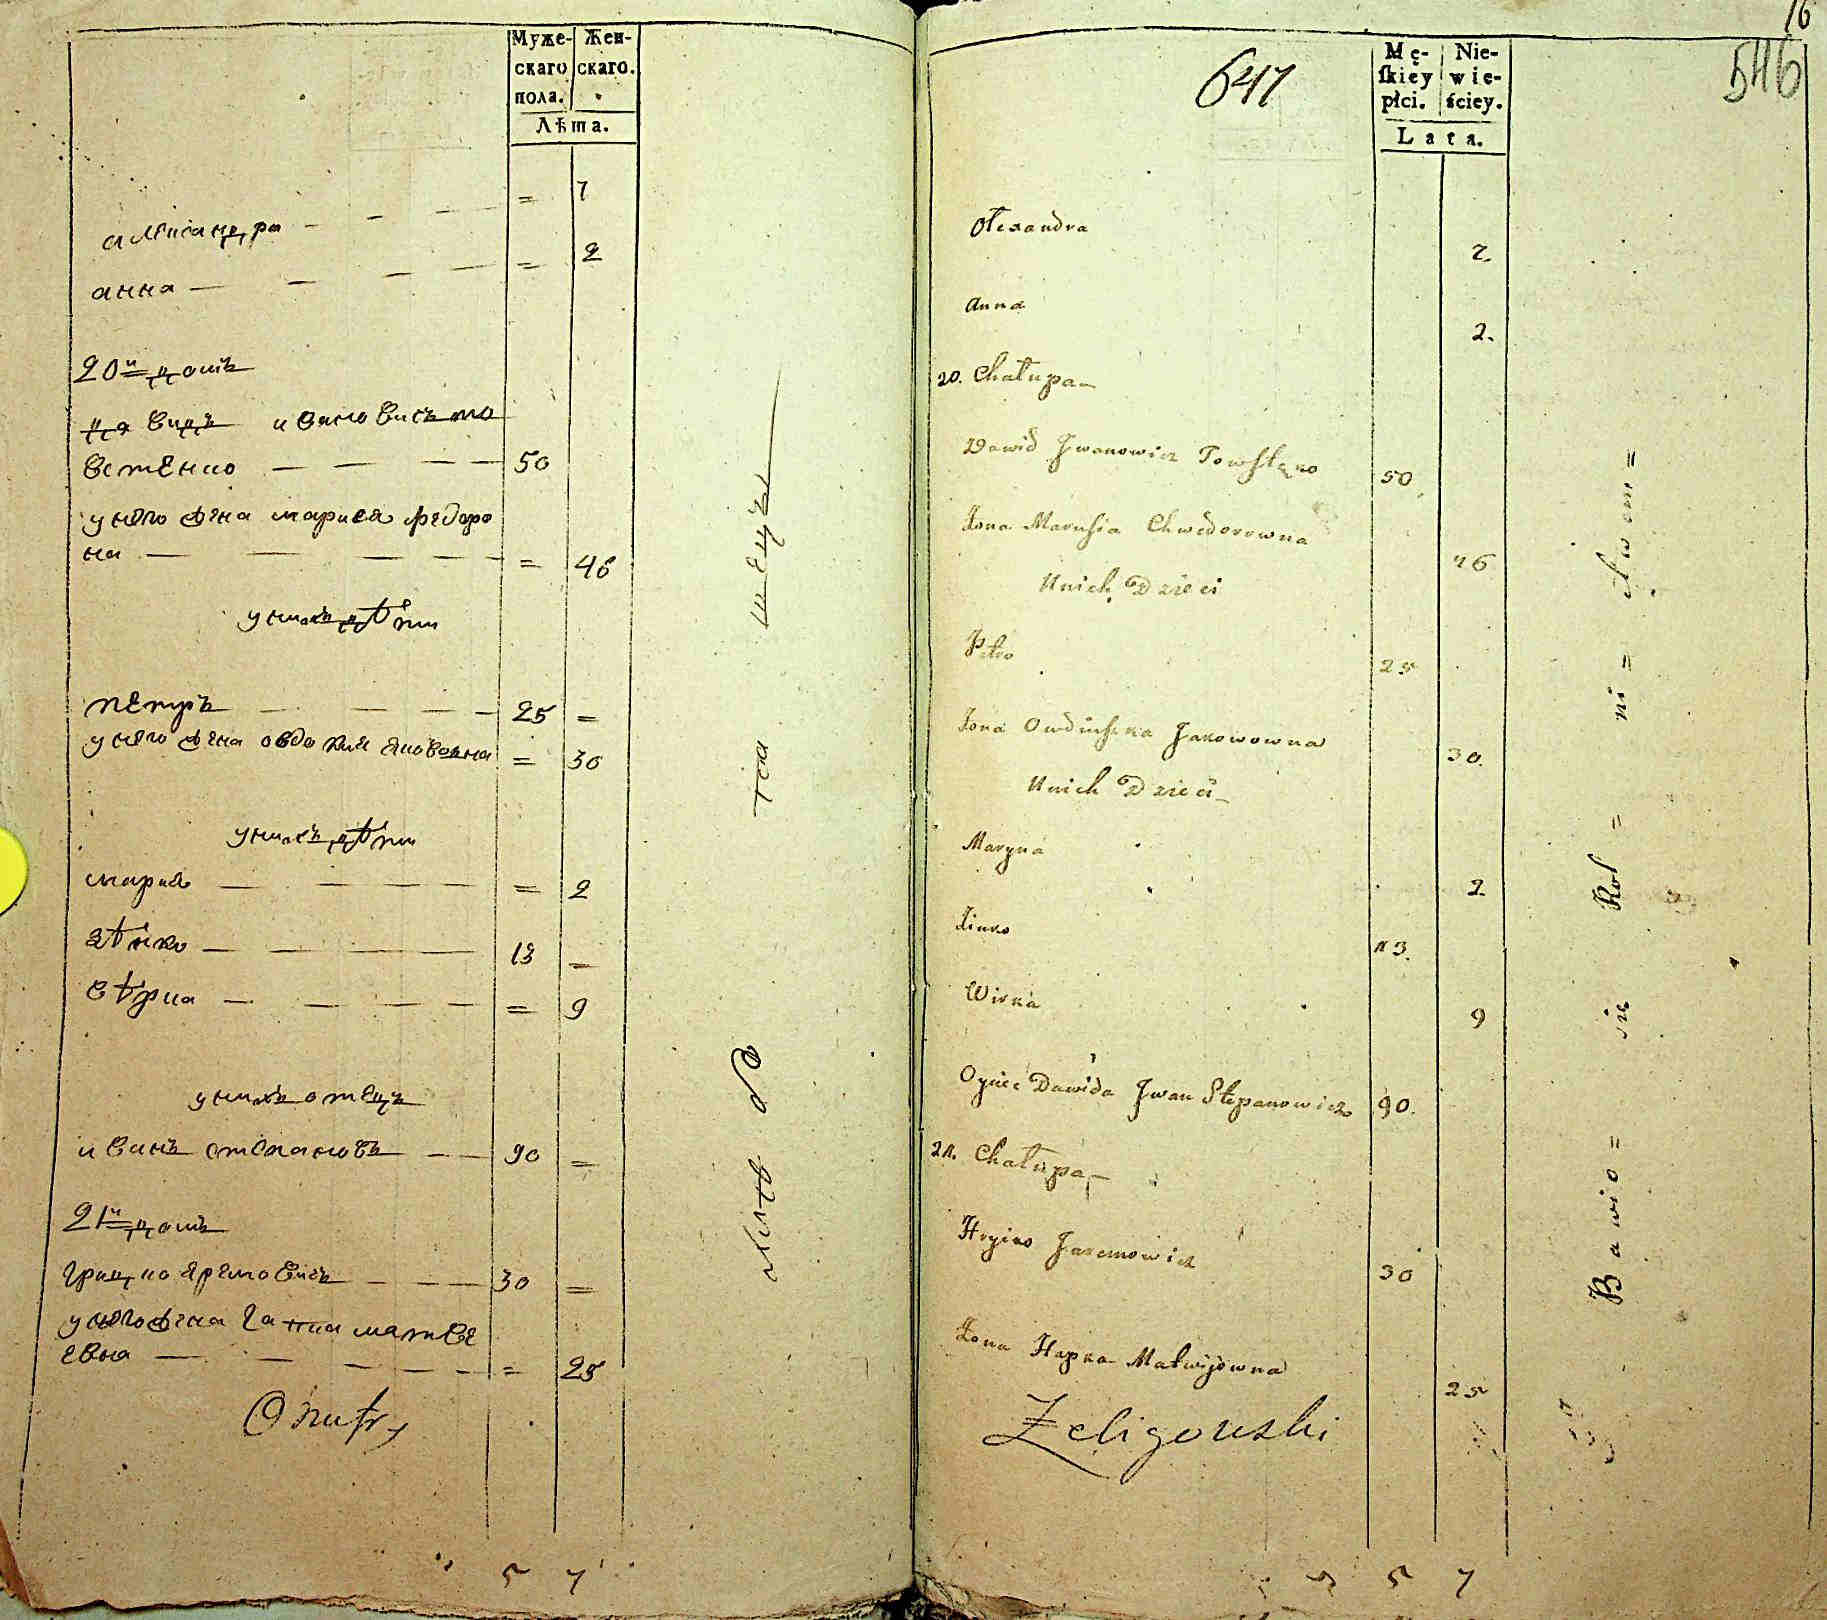 Муже- Жен-
скаго скаго.
пола.
Лѣта.
александра = 7
анна = 2
20й домъ
давидъ ивановичъ то
встенко 50
у него жена марися федоро
на = 46
у нихъ дѣти
петръ 25 =
у него жена овдокия якововна = 30
у нихъ дѣти
мария = 2
зѣнко 13 —
вѣрка = 9
у нихъ отецъ
иванъ степановъ 90 =
21й домъ
грицко яремовичъ 30 =
у него жена гапка матве
евна = 25
5 7
16
546
647
Mę- Nie-
skiey wie-
płci. ściey.
Lata.
Ołexandra 7.
Anna 2.
20. Chałupa
Dawid Jwanowicz Towstęko 50
Żona Marusia Chwedorowna 46
Unich Dzieci
Petro 25
Żona Owdiuszka Jakowowna 30.
Unich Dzieci
Maryna 2
Zinko 13.
Wirka 9
Oyciec Dawida Jwan Stepanowicz 90.
21. Chałupa
Hryćko Jaremowicz 30
Żona Hapka Matwijowna 25
Żeligowski
Bawio = się Rol = ni = ctwem =
5 7